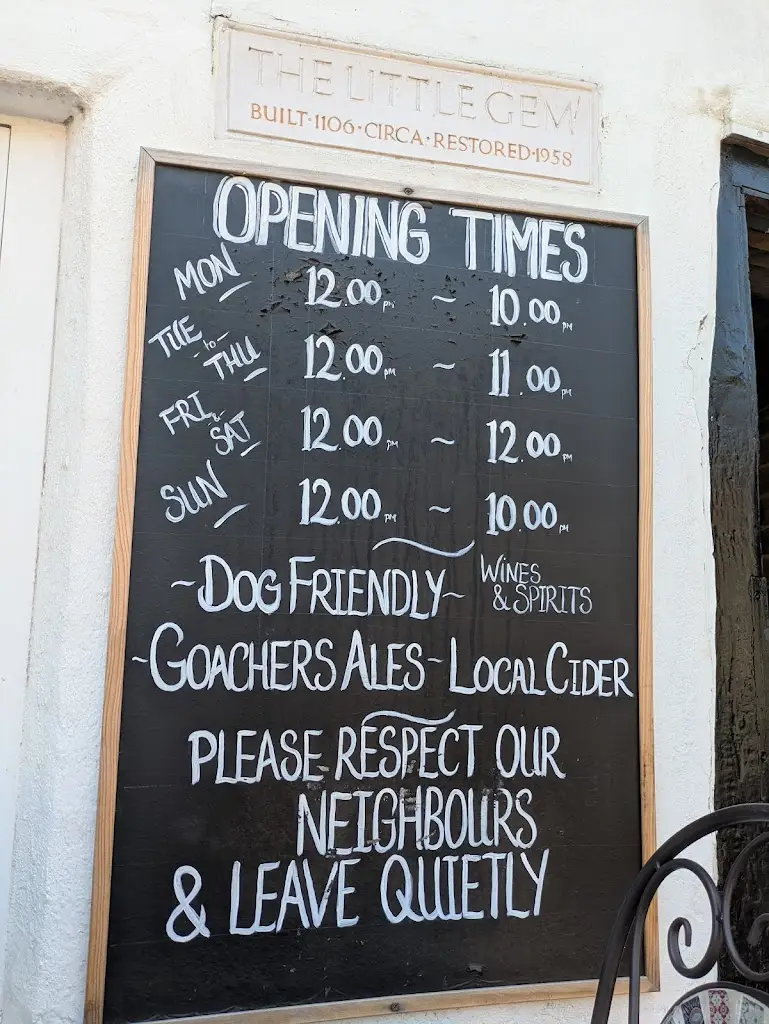 THE LITTLE GEM
BUILT·1106·CIRCA·RESTORED·1958
OPENING TIMES
MON 12.00pm ~ 10.00pm
TUE to THU 12.00pm ~ 11.00pm
FRI & SAT 12.00pm ~ 12.00pm
SUN 12.00pm ~ 10.00pm
~DOG FRIENDLY~ WINES & SPIRITS
~GOACHERS ALES~LOCAL CIDER
PLEASE RESPECT OUR
NEIGHBOURS
& LEAVE QUIETLY